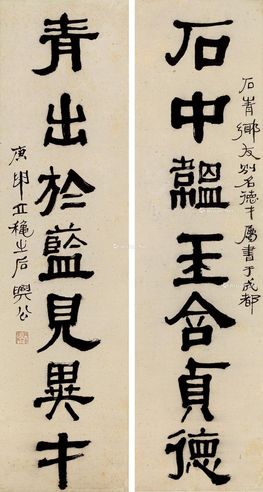 石中韞玉含貞德
石青鄉友別名德才屬書于成都
青出於藍見異才
庚申立秋之后興公